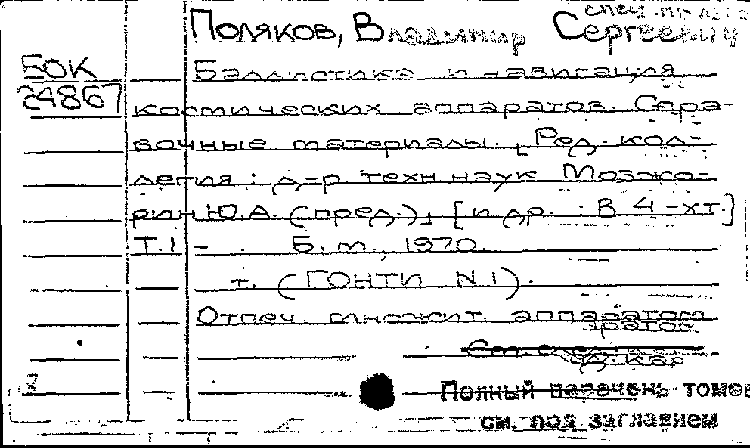 Поляков, Владимир Сергеевич
БОК
24867
Баллистика и навигация
космических аппаратов. Спра-
вочные материалы. [Ред. кол-
легия: д-р техн. наук Мозжо-
рин Ю.А. (пред.)], [и др. : В 4-хт.]
Т. 1 - . Б. м., 1970.
т. (ГОНТИ N1).
Отпеч. множит. аппаратом
Полный перечень томов
см. под заглавием